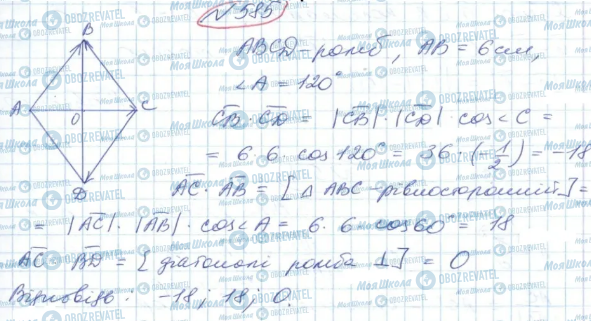 №585
B
ABCD - ромб, AB = 6 см,
∠A = 120°
A O C
CB · CD = |CB| · |CD| · cos∠C =
= 6 · 6 · cos 120° = 36 · (-1/2) = -18
D
AC · AB = [△ ABC - рівносторонній] =
= |AC| · |AB| · cos∠A = 6 · 6 · cos 60° = 18
AC · BD = [діагоналі ромба ⊥] = 0
Відповідь: -18; 18; 0.